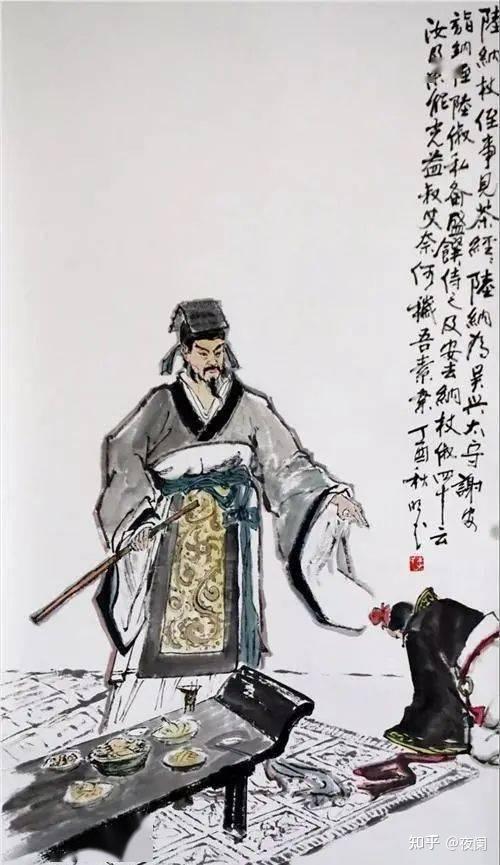 陸納杖侄事見茶經陸納为吴兴太守謝安
詣納侄陸俶私备盛饌侍之及安去納杖俶四十云
汝既不能光益叔父奈何穢吾素業丁酉秋
知乎 @夜